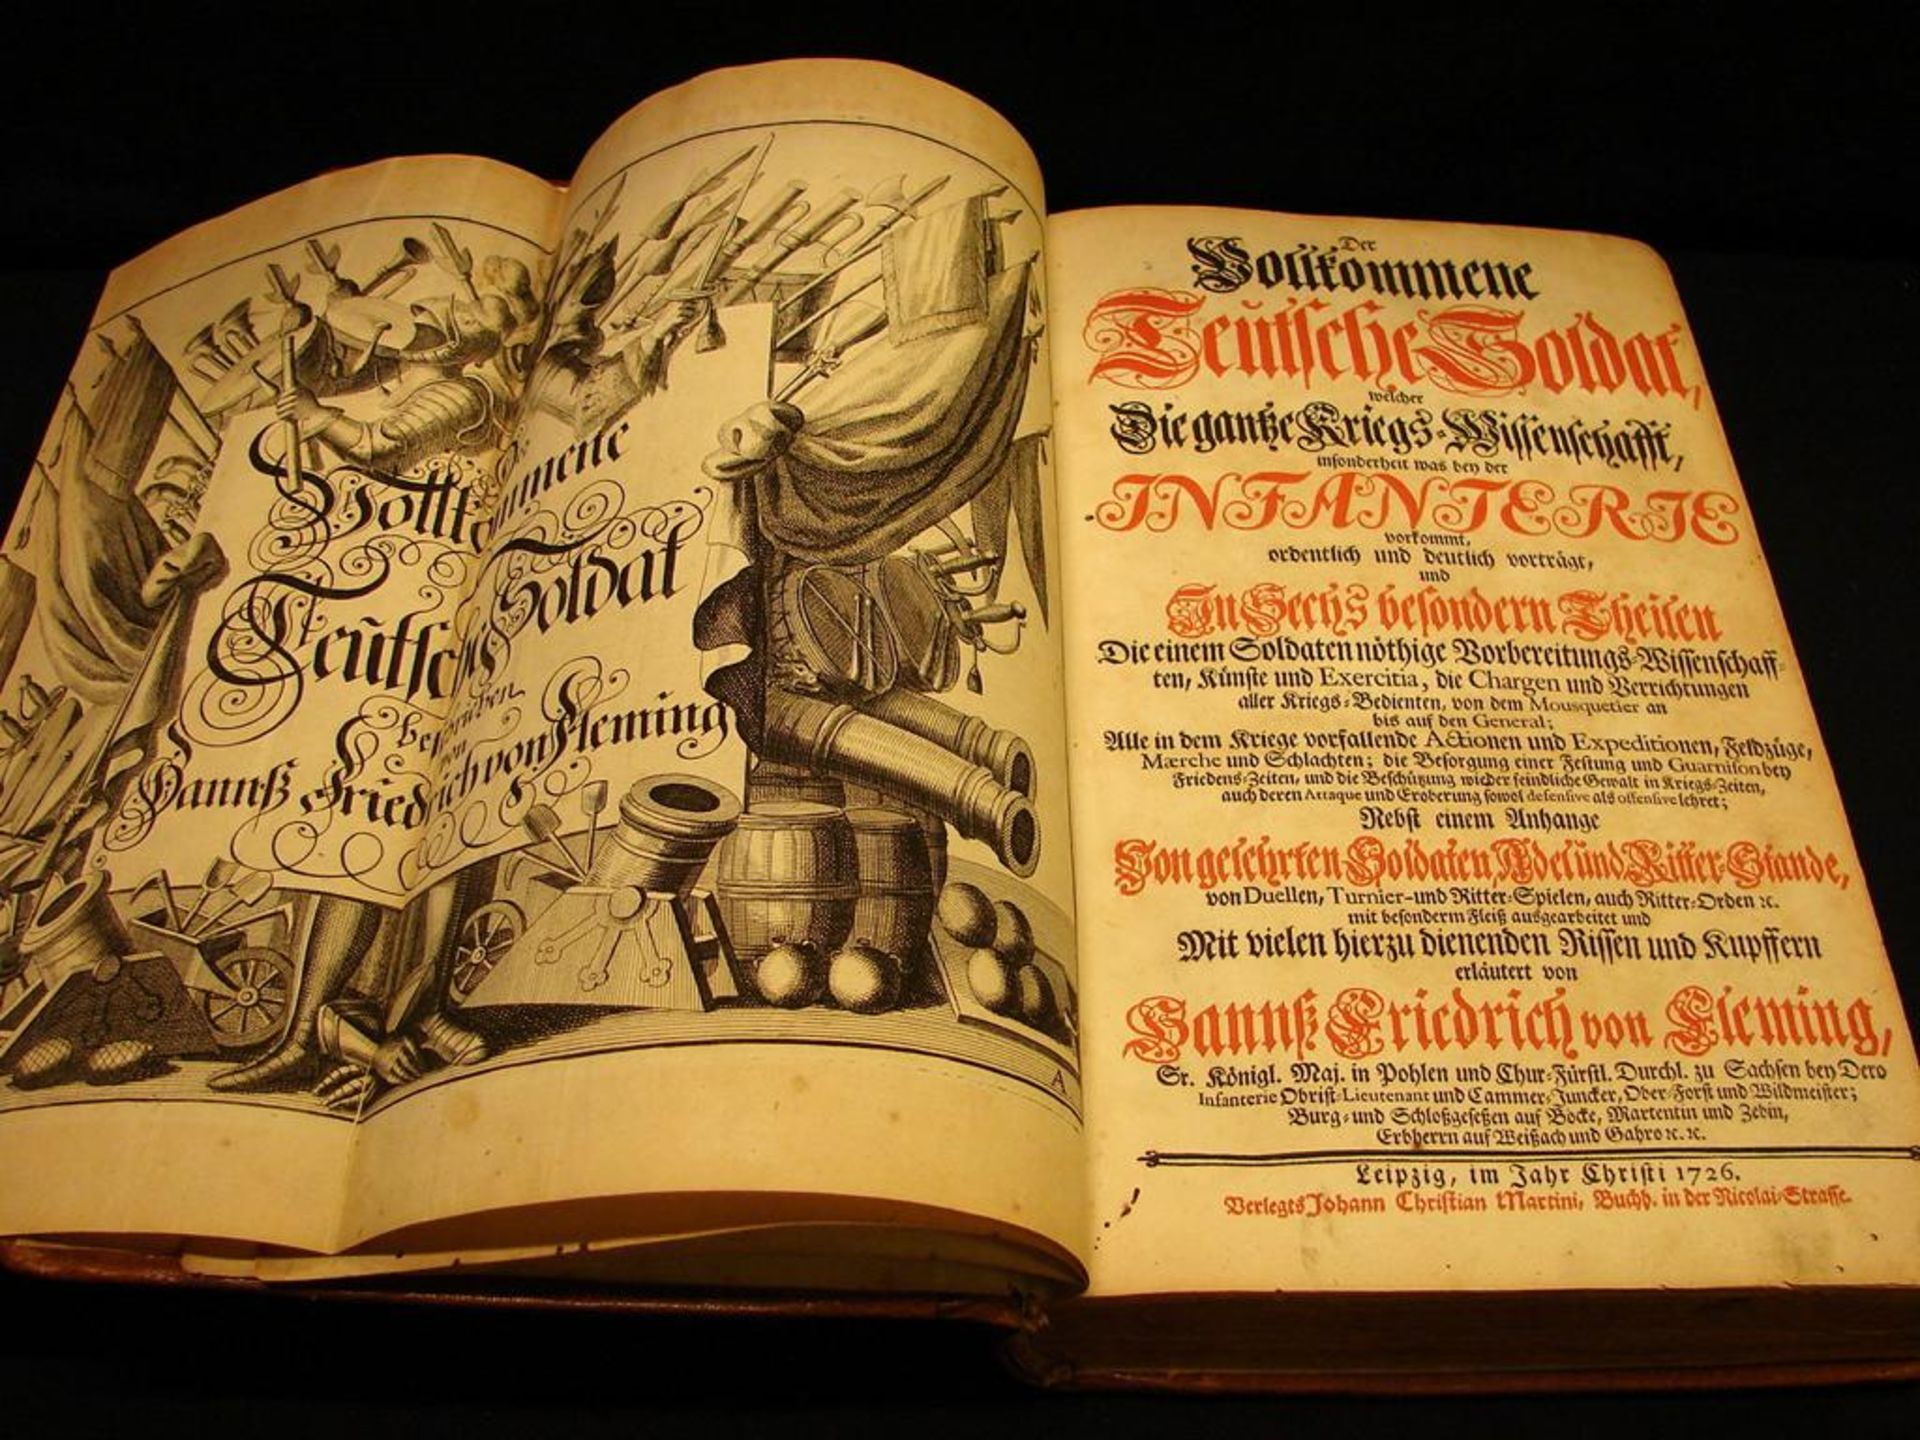 Vollkommene
Teutsche Soldat
beschrieben
von
Hannß Friedrich von Fleming
A
Der
Vollkommene
Teutsche Soldat,
welcher
Die gantze Kriegs-Wissenschafft,
insonderheit was bey der
INFANTERIE
vorkommt,
ordentlich und deutlich vorträgt,
und
In Sechs besondern Theilen
Die einem Soldaten nöthige Vorbereitungs-Wissenschaff-
ten, Künste und Exercitia, die Chargen und Verrichtungen
aller Kriegs-Bedienten, von dem Mousquetier an
bis auf den General;
Alle in dem Kriege vorfallende Actionen und Expeditionen, Feldzüge,
Mærche und Schlachten; die Besorgung einer Festung und Guarnison bey
Friedens-Zeiten, und die Beschützung wieder feindliche Gewalt in Kriegs-Zeiten,
auch deren Attaque und Eroberung sowol defensive als offensive lehret;
Nebst einem Anhange
Von gelehrten Soldaten, Adel und Ritter-Stande,
von Duellen, Turnier- und Ritter-Spielen, auch Ritter-Orden ꝛc.
mit besonderm Fleiß ausgearbeitet und
Mit vielen hierzu dienenden Rissen und Kupffern
erläutert von
Hannß Friedrich von Fleming,
Sr. Königl. Maj. in Pohlen und Chur-Fürstl. Durchl. zu Sachsen bey Dero
Infanterie Obrist-Lieutenant und Cammer-Juncker, Ober-Forst und Wildmeister;
Burg- und Schloßgesessen auf Böcke, Martentin und Zebin,
Erbherrn auf Weißach und Gahro ꝛc. ꝛc.
Leipzig, im Jahr Christi 1726.
Verlegts Johann Christian Martini, Buchh. in der Nicolai-Strasse.